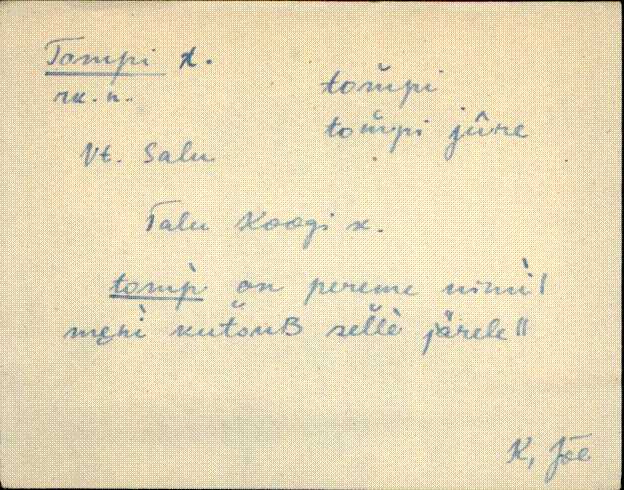 Tompi t.
rk. n.
tom̆pi
tom̆pi jûre
Vt. Salu
Talu Koogi x.
tomp̀ on pereme nimì|
męnì kut̆suB sel̆lè järele||
K. Jõe